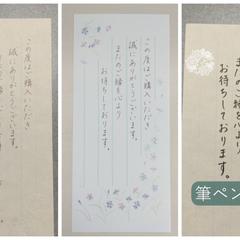 この度はご購入いただき
誠にありがとうございます。
またのご縁を心より
お待ちしております。
この度はご購入いただき
誠にありがとうございます。
またのご縁を心より
お待ちしております。
筆ペン